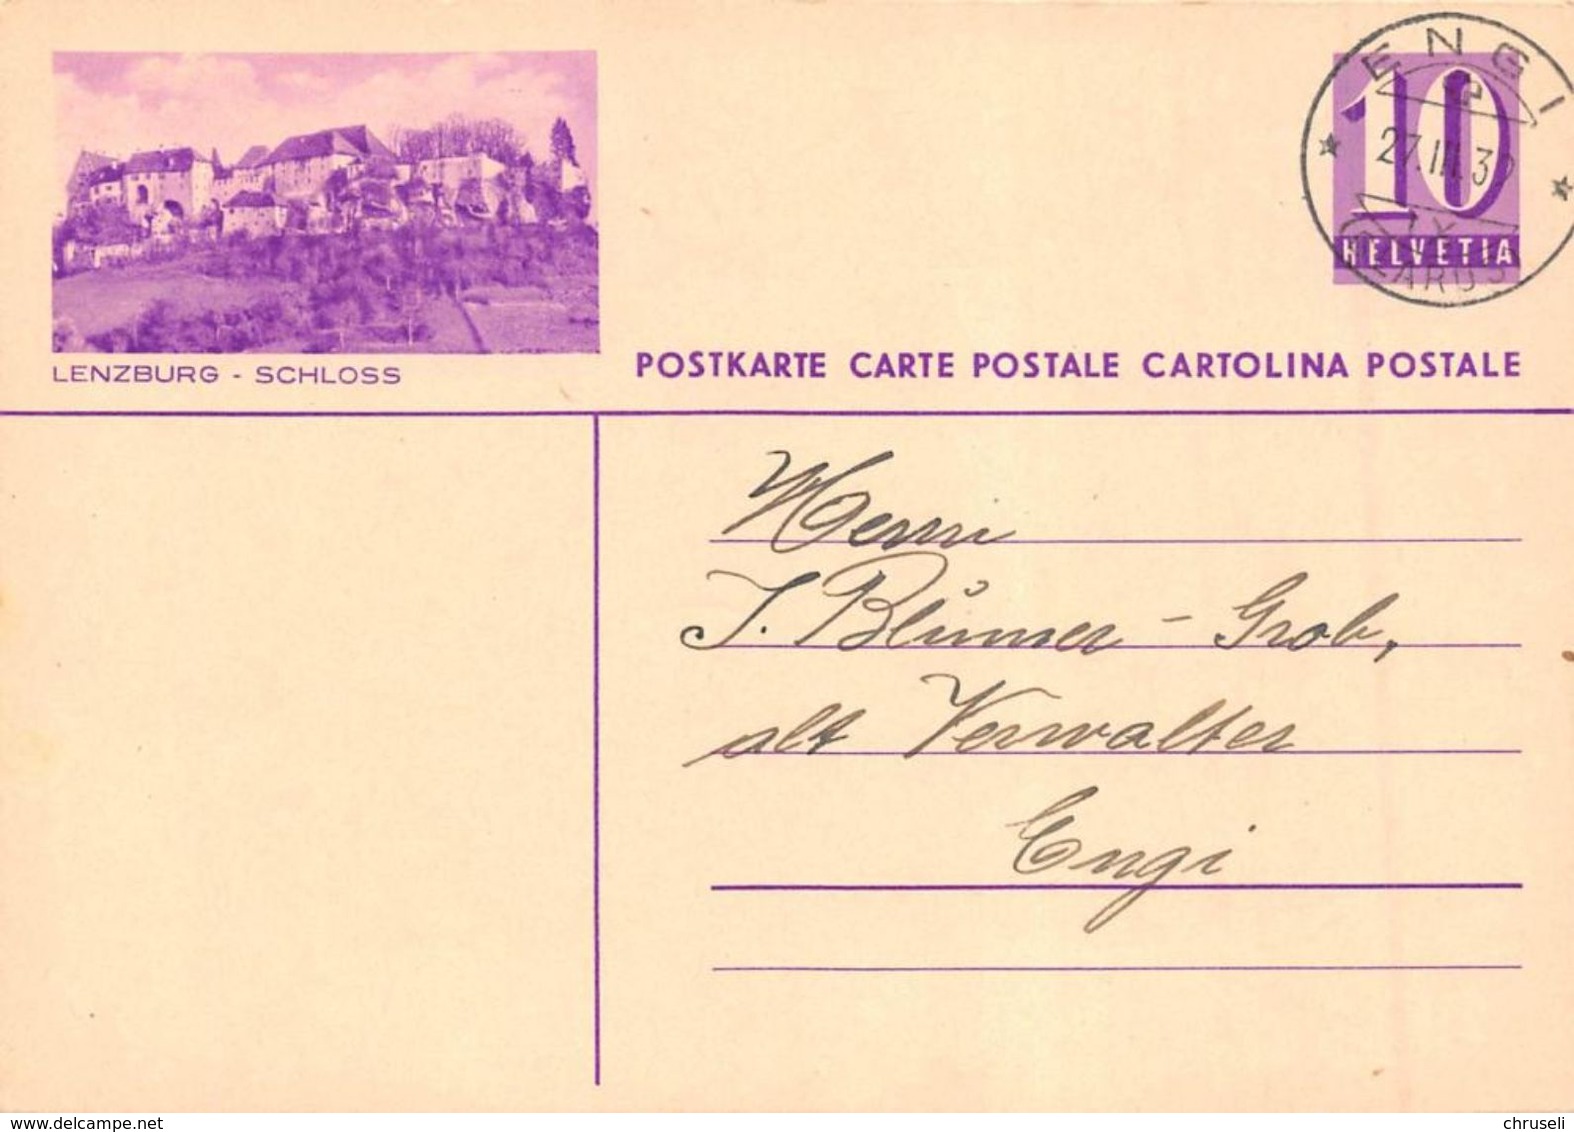 ENGI
10
27.III.39
HELVETIA
GLARUS
LENZBURG - SCHLOSS
POSTKARTE CARTE POSTALE CARTOLINA POSTALE
Herrn
J. Blumer - Grob,
alt Verwalter
Engi
www.delcampe.net
chruseli